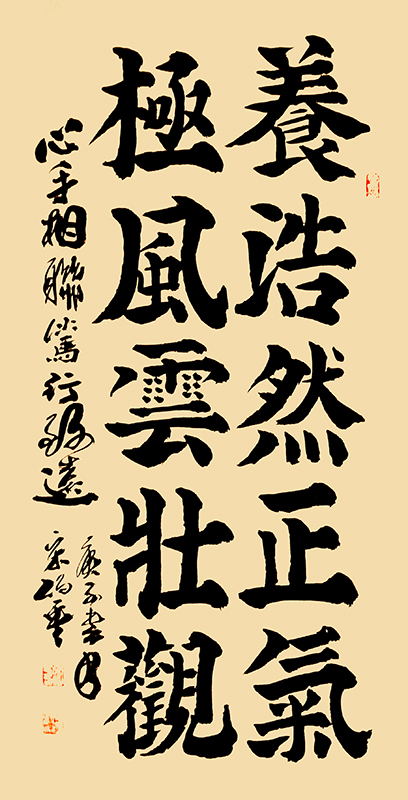 養浩然正氣
極風雲壯觀
心手相聯篤行致遠